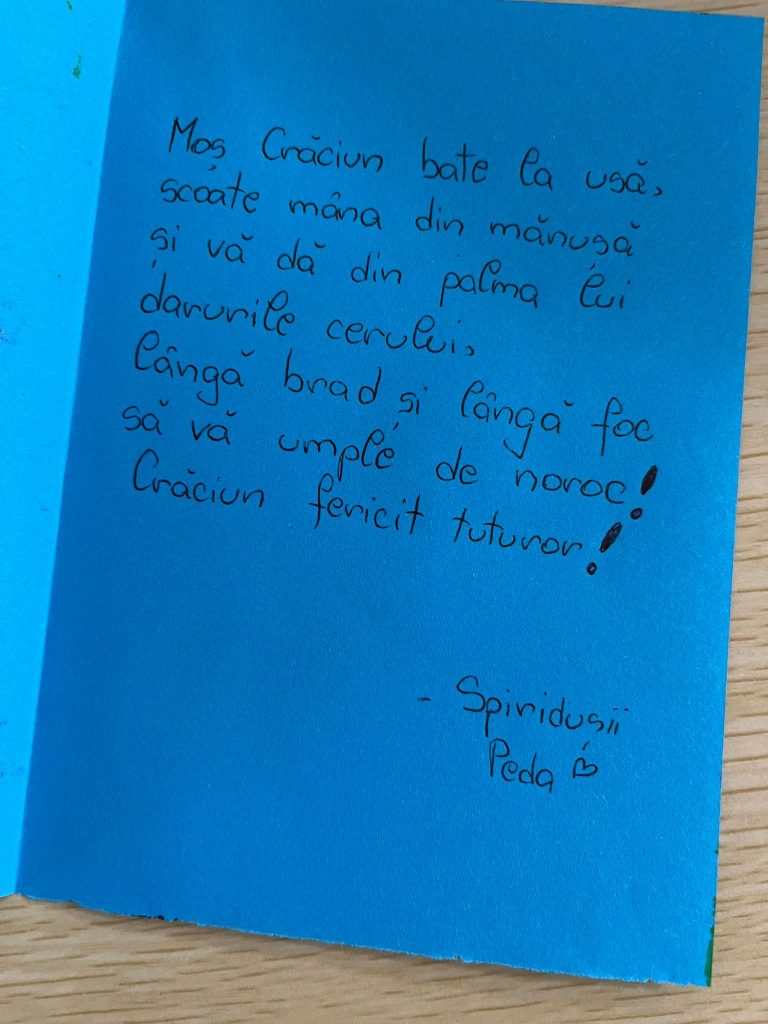 Moș Crăciun bate la ușă,
scoate mâna din mănușă
și vă dă din palma lui
darurile cerului,
lângă brad și lângă foc
să vă umple de noroc!
Crăciun fericit tuturor!
- Spiridușii
Peda ♡